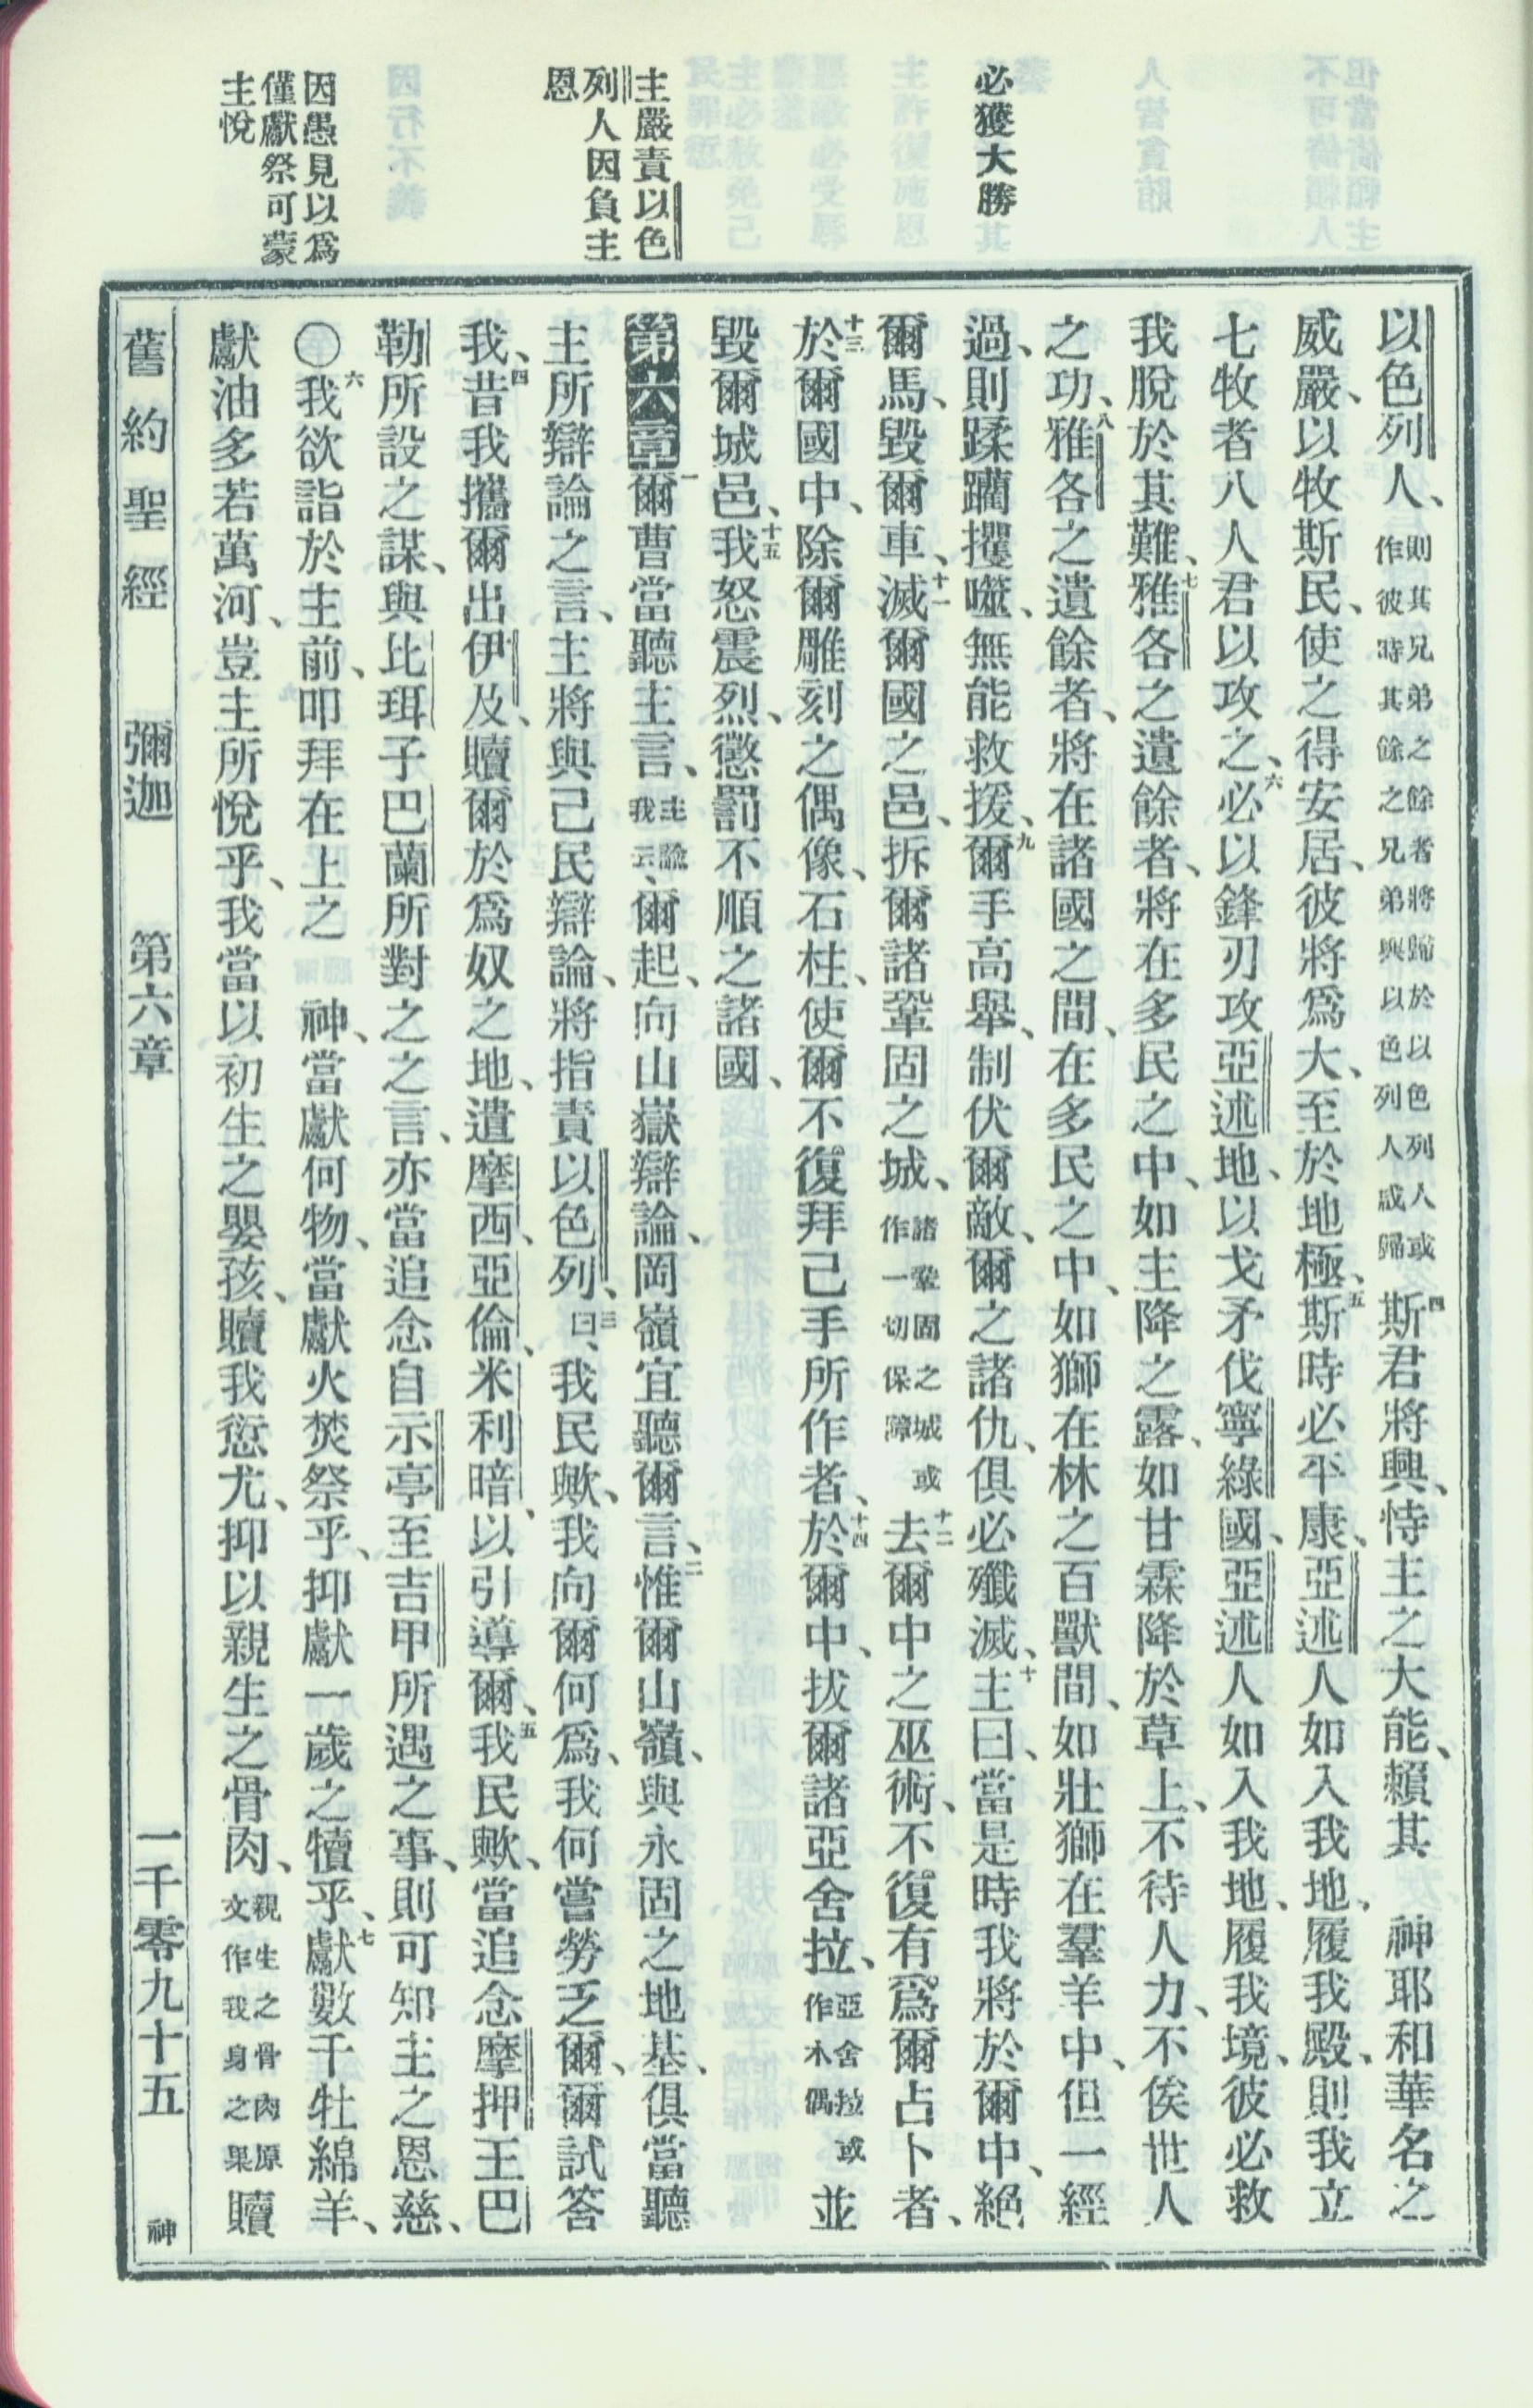 必獲大勝
主嚴責以色
列人因負主
恩
因愚見以爲
僅獻祭可蒙
主悅
以色列人、則其兄弟之餘者將歸於以色列人或作彼時其餘之兄弟與以色列人或歸四斯君將興、恃主之大能、賴其　神耶和華名之
威嚴、以牧斯民、使之得安居、彼將爲大、至於地極、五斯時必平康、亞述人如入我地、履我殿、則我立
七牧者八人君以攻之、六必以鋒刃攻亞述地、以戈矛伐寧綠國、亞述人如入我地、履我境、彼必救
我脫於其難、七雅各之遺餘者、將在多民之中、如主降之露、如甘霖降於草上、不待人力、不俟世人
之功、八雅各之遺餘者、將在諸國之間、在多民之中、如獅在林之百獸間、如壯獅在羣羊中、但一經
過、則蹂躪攫噬、無能救援、九爾手高舉、制伏爾敵、爾之諸仇、俱必殲滅、十主曰、當是時我將於爾中、絕
爾馬、毀爾車、十一滅爾國之邑、拆爾諸鞏固之城、諸鞏固之城或作一切保障十二去爾中之巫術、不復有爲爾占卜者、
十三於爾國中、除爾雕刻之偶像、石柱、使爾不復拜己手所作者、十四於爾中、拔爾諸亞舍拉、亞舍拉或作木偶並
毀爾城邑、十五我怒震烈、懲罰不順之諸國、
第六章一爾曹當聽主言、主諭我云、爾起、向山嶽辯論、岡嶺宜聽爾言、二惟爾山嶺、與永固之地基、俱當聽
主所辯論之言、主將與己民辯論、將指責以色列、三曰、我民歟、我向爾何爲、我何嘗勞乏爾、爾試答
我、四昔我攜爾出伊及、贖爾於爲奴之地、遣摩西、亞倫、米利暗、以引導爾、五我民歟、當追念摩押王巴
勒所設之謀、與比珥子巴蘭所對之之言、亦當追念自示亭至吉甲所遇之事、則可知主之恩慈、
〇六我欲詣於主前、叩拜在上之　神、當獻何物、當獻火焚祭乎、抑獻一歲之犢乎、七獻數千牡綿羊、
獻油多若萬河、豈主所悅乎、我當以初生之嬰孩、贖我愆尤、抑以親生之骨肉、親生之骨肉原文作我身之果贖
舊約聖經　彌迦　第六章　一千零九十五　神